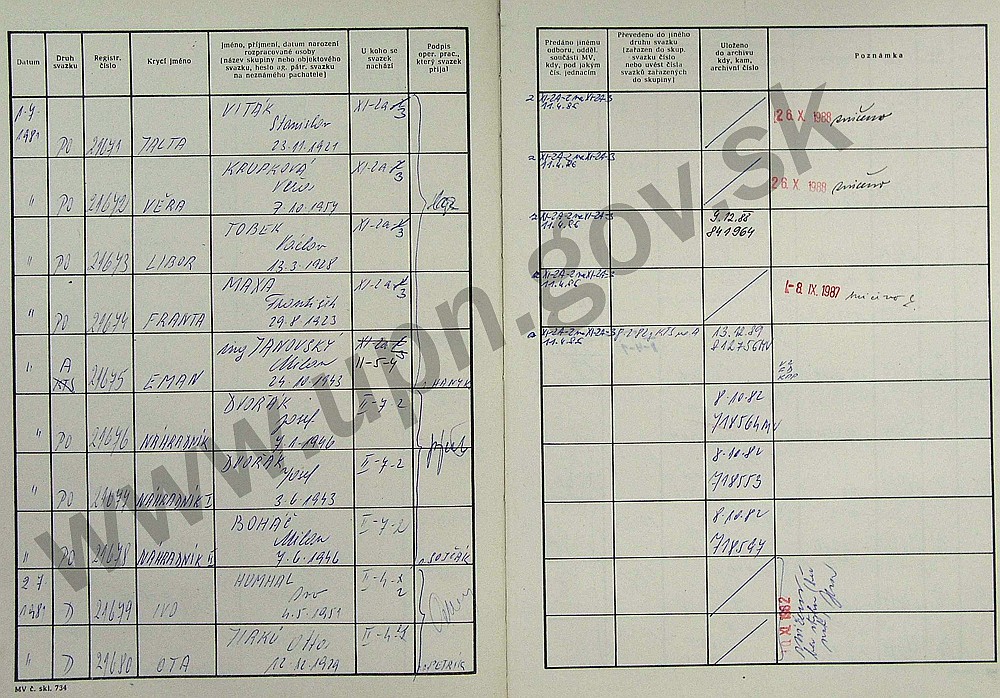 Datum
Druh
svazku
Registr.
číslo
Krycí jméno
Jméno, příjmení, datum narození
rozpracované osoby
(název skupiny nebo objektového
svazku, heslo ag. pátr. svazku
na neznámého pachatele)
U koho se
svazek
nachází
Podpis
oper. prac.,
který svazek
přijal
Předáno jinému
odboru, odděl.
součásti MV,
kdy, pod jakým
čís. jednacím
Převedeno do jiného
druhu svazku
(zařazen do skup.
svazku číslo
nebo uvést čísla
svazků zařazených
do skupiny)
Uloženo
do archivu
kdy, kam,
archivní číslo
Poznámka
1.7.
1981 PO 21671 JALTA
VITÁK
Stanislav
23.11.1921
XI-2a
3
XI-2A-2 na XI-2A-3
11.4.86
26. X. 1988 zničeno
" PO 21672 VĚRA
KRUPKOVÁ
Věra
7.10.1957
XI-2a
3
XI-2A-2 na XI-2A-3
11.4.86
26. X. 1988 zničeno
" PO 21673 LIBOR
TOBEK
Václav
13.3.1928
XI-2a
3
XI-2A-2 na XI-2A-3
11.4.86
9.12.88
841964
" PO 21674 FRANTA
MAXA
František
29.8.1923
XI-2a
3
XI-2A-2 na XI-2A-3
11.4.86
-8. IX. 1987 zničeno
" A 21675 EMAN
ing JANOVSKÝ
Milan
24.10.1943
II-5-4
HANYK
XI-2A-2 na XI-2A-3
11.4.86
13.12.89
812756 MV
" PO 21676 NÁHRADNÍK
DVOŘÁK
Josef
1.1946
II-7-2
8.10.82
718564 MV
" PO 21677 NÁHRADNÍK I
DVOŘÁK
Josef
3.6.1943
II-7-2
8.10.82
718553
" PO 21678 NÁHRADNÍK II
BOHÁČ
Milan
7.6.1946
II-7-2
SOJČÁK
8.10.82
718547
2.7.
1981 D 21679 IVO
HUMHAL
Ivo
4.5.1951
II-4-
2
XI. 1982
" D 21680 OTA
JIRKŮ
Otto
12.12.1929
II-4-
PETRÍK
MV č. skl. 734
www.upn.gov.sk